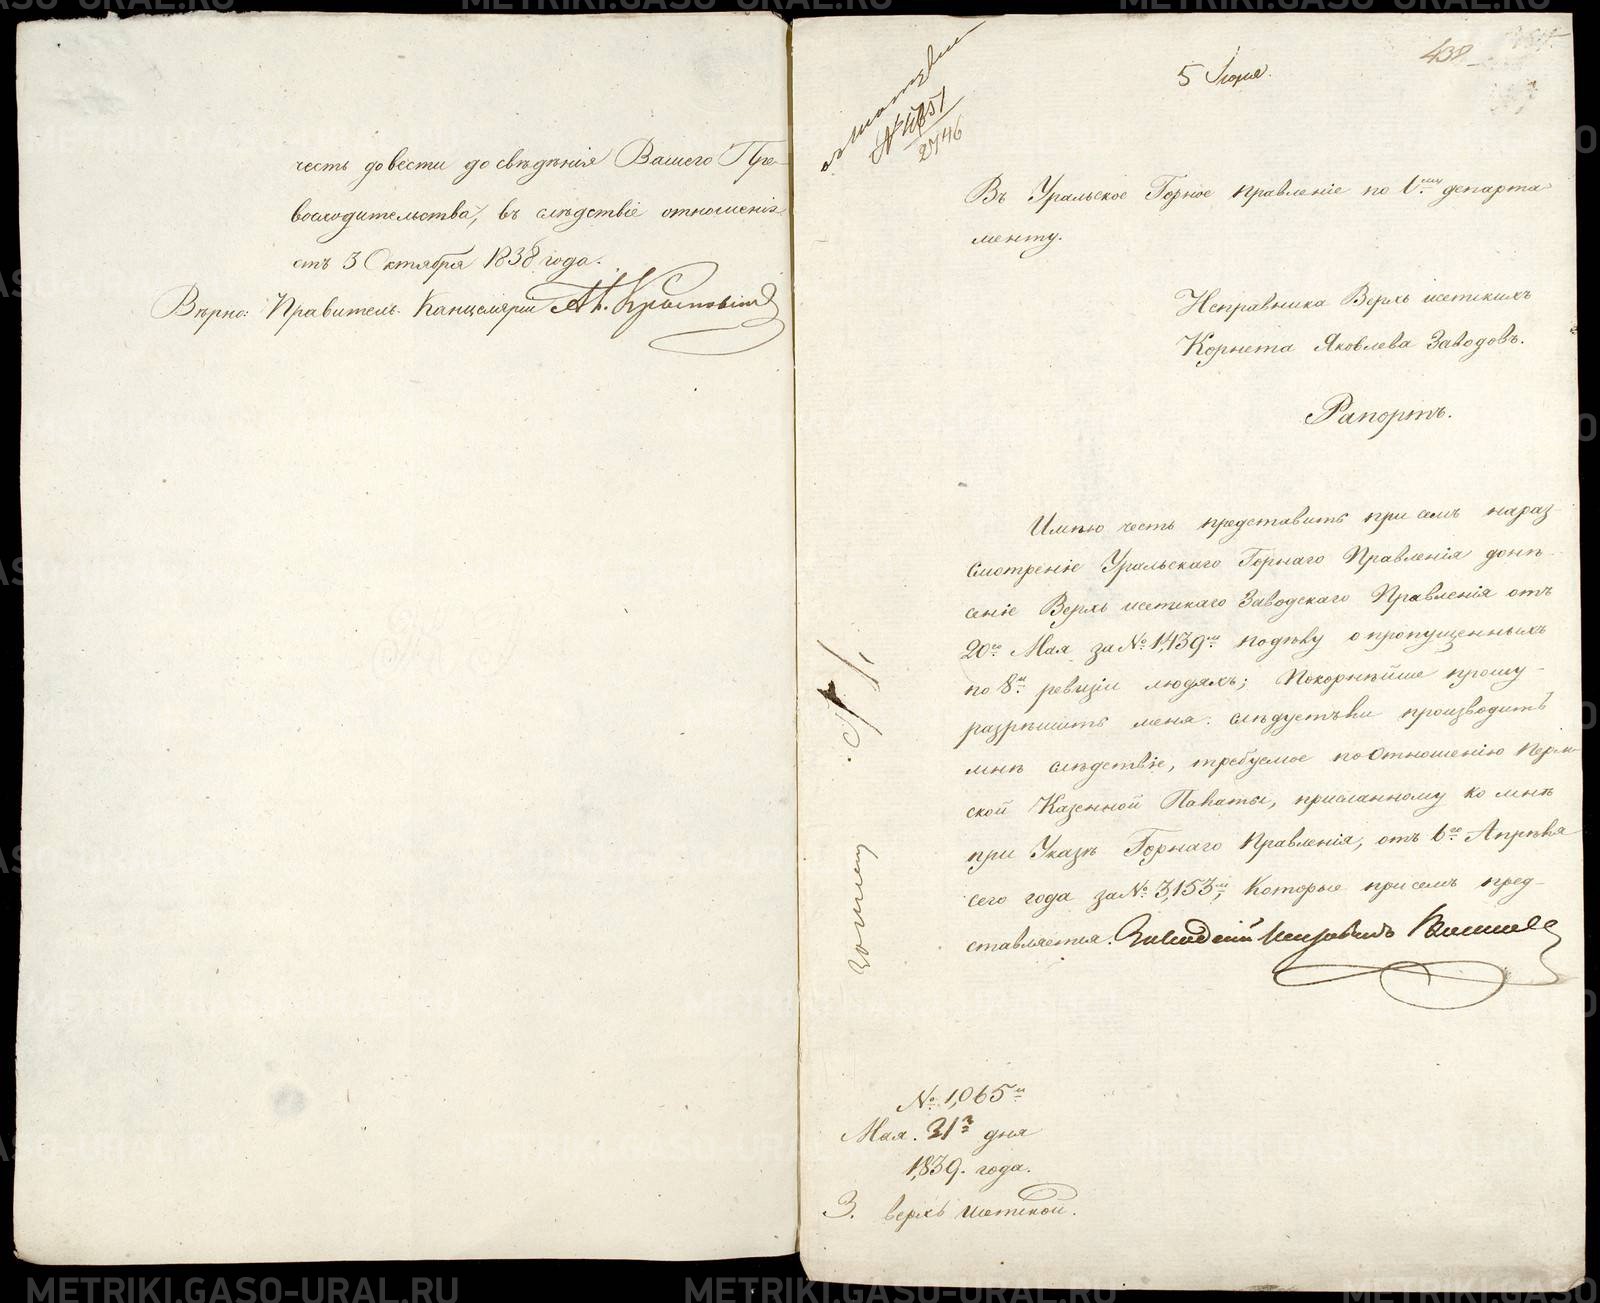 честь довести до свѣдѣнія Вашего Пре-
восходительства, въ слѣдствіе отношенія
отъ 3 Октября 1838 года.
Вѣрно: Правитель Канцеляріи
438
5 Іюня.
№ 4651
2746
Въ Уральское Горное правленіе по 1му департа
менту.
Исправника Верхъ исетскихъ
Корнета Яковлева Заводовъ.
Рапортъ.
Имѣю честь представить при семъ нараз-
смотреніе Уральскаго Горнаго Правленія доне-
сеніе Верхъ исетскаго Заводскаго Правленія отъ
20го Мая за № 1,439м подѣлу о пропущенныхъ
по 8й ревизіи людяхъ; Покорнѣйше прошу-
разрѣшить меня. слѣдуетъ ли производить
мнѣ слѣдствіе, требуемое по Отношенію Перм-
ской Казенной Палаты, присланному ко мнѣ
при Указѣ Горнаго Правленія, отъ 6го Апрѣля
сего года за № 3,153м, Которые при семъ пред-
ставляется. Заводскій Исправникъ
№ 1,065й
Мая. 31го дня
1,839. года.
З. верхъ Исетской.
METRIKI.GASO-URAL.RU